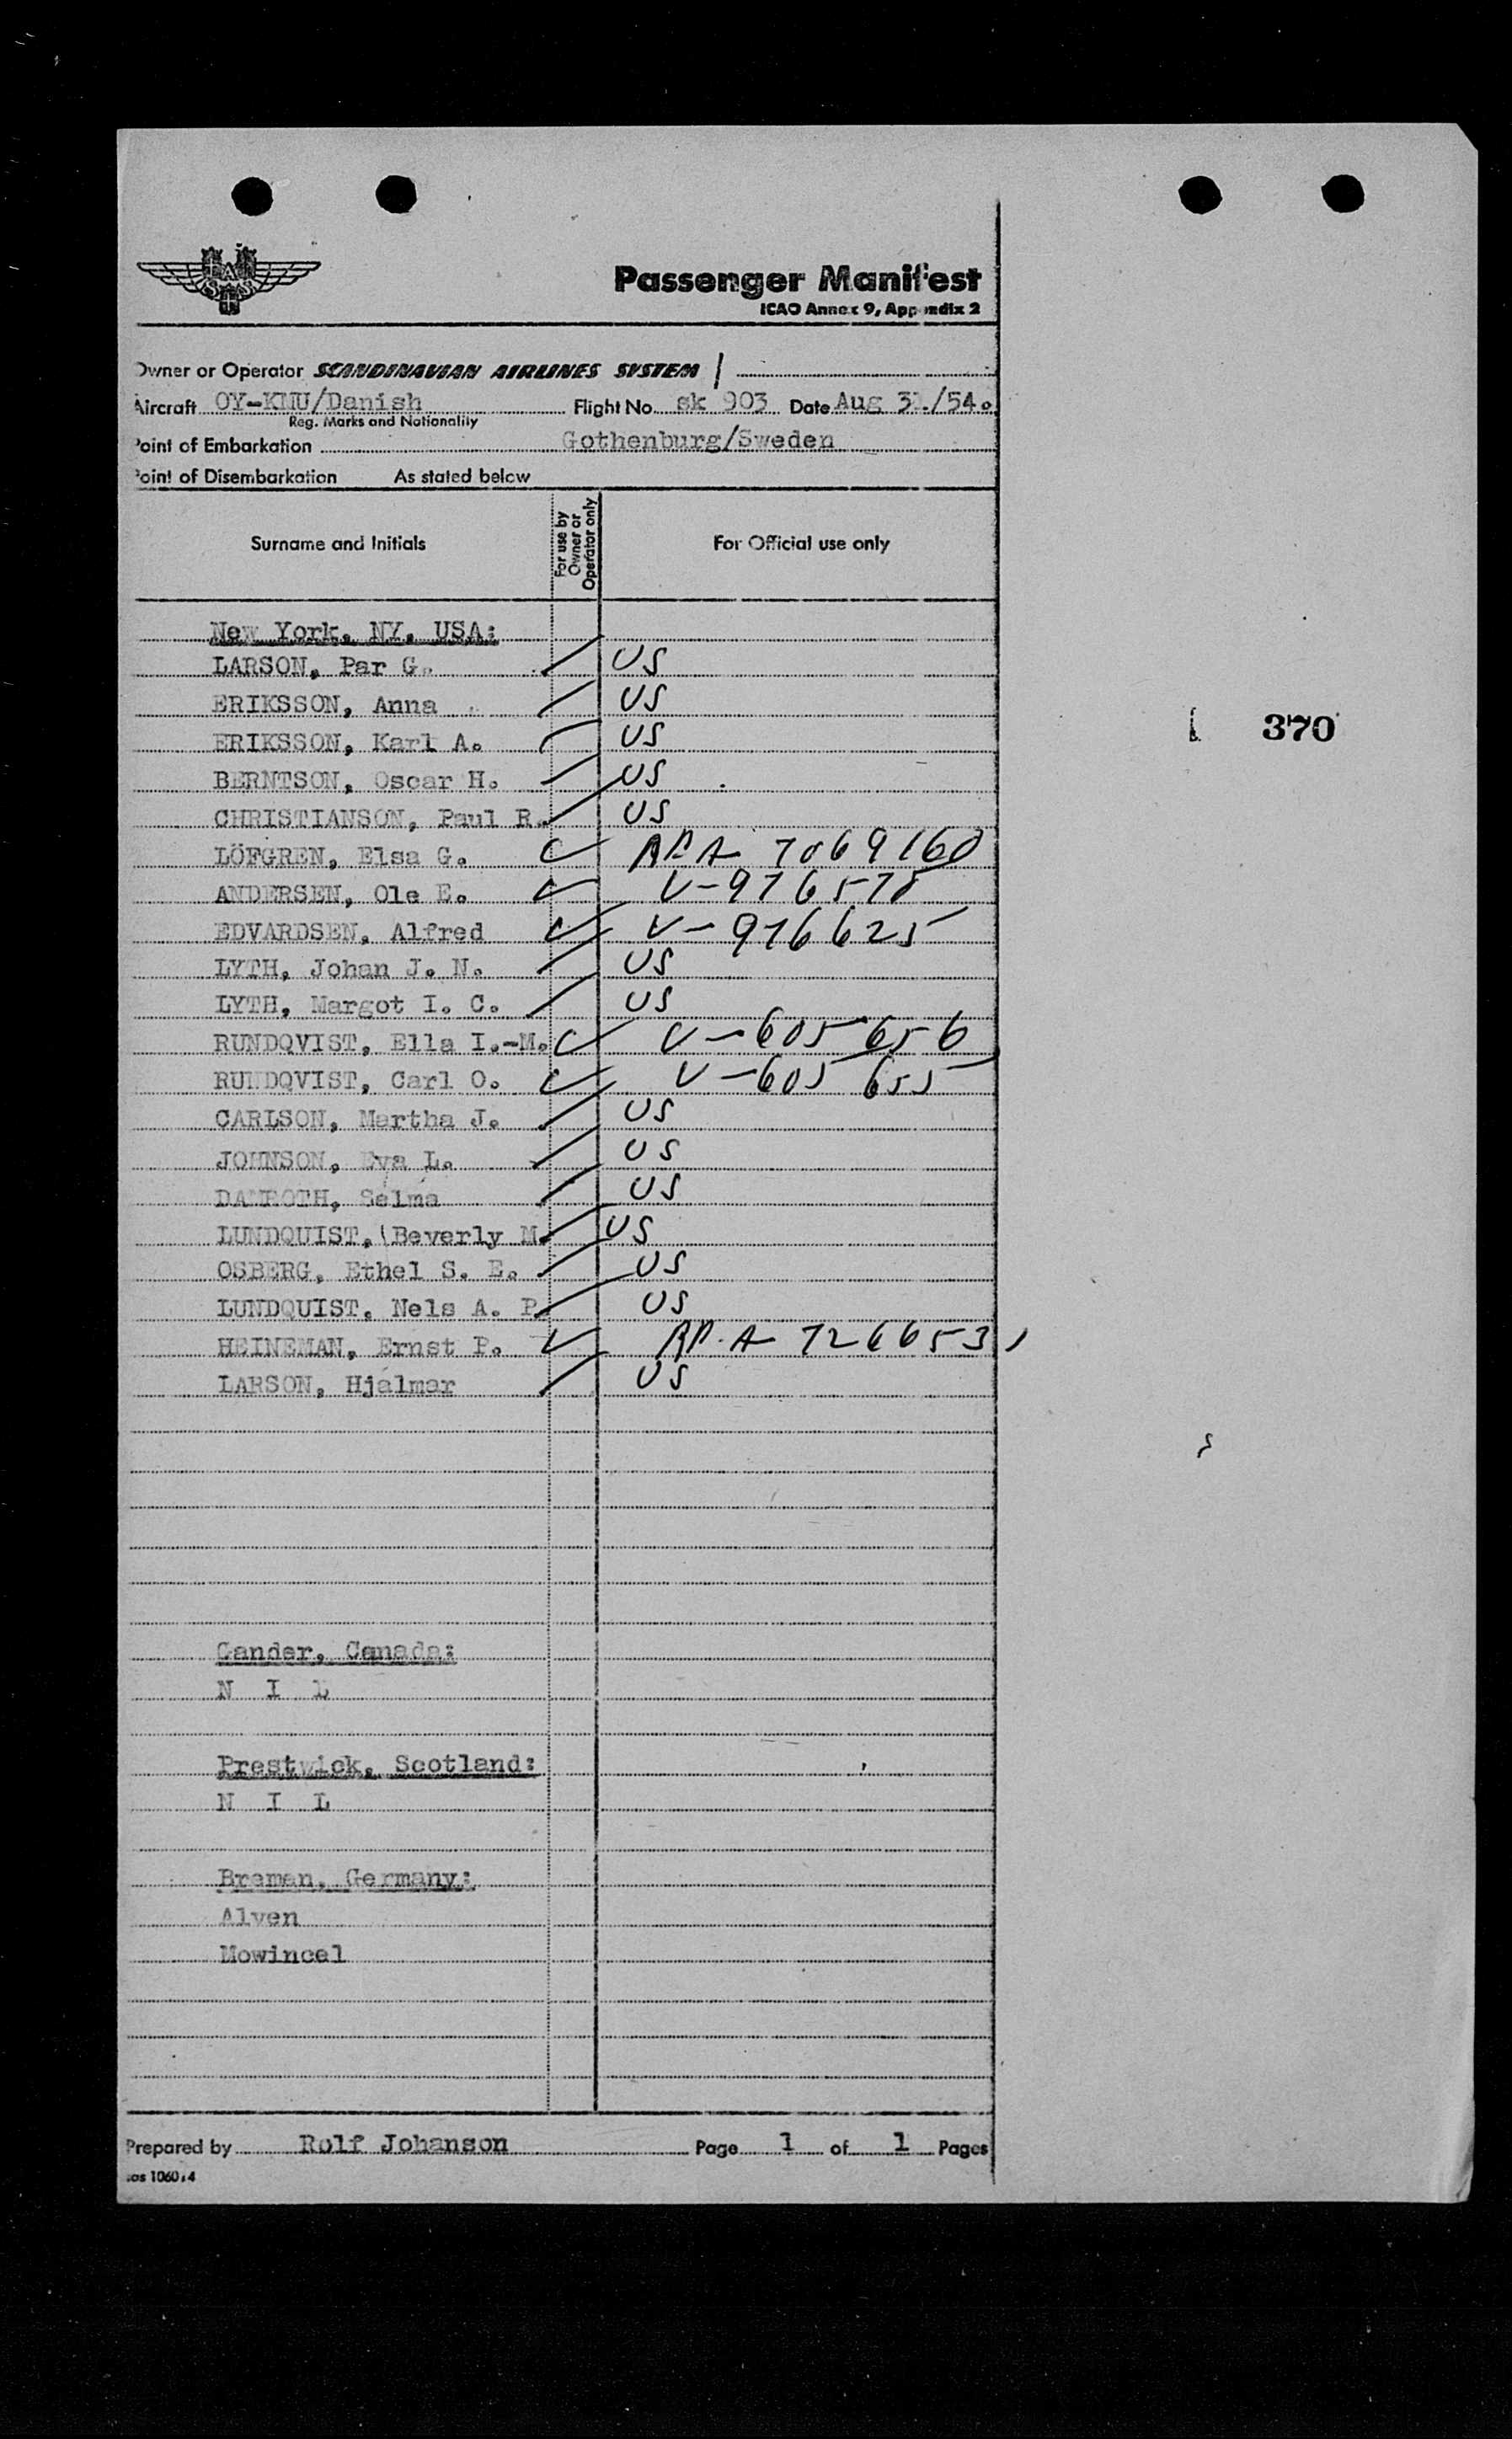 SAS
Passenger Manifest
ICAO Annex 9, Appendix 2
Owner or Operator SCANDINAVIAN AIRLINES SYSTEM
Aircraft OY-KMU/Danish Flight No. sk 903 Date Aug 31./54.
Reg. Marks and Nationality
Point of Embarkation Gothenburg/Sweden
Point of Disembarkation As stated below
Surname and Initials For use by Owner or Operator only For Official use only
New York, NY, USA:
LARSON, Par G. US
ERIKSSON, Anna US
370
ERIKSSON, Karl A. US
BERNTSON, Oscar H. US
CHRISTIANSON, Paul R. US
LÖFGREN, Elsa G. ARA 7069160
ANDERSEN, Ole E. V-976578
EDVARDSEN, Alfred V-976625
LYTH, Johan J. N. US
LYTH, Margot I. C. US
RUNDQVIST, Ella I.-M. V-605656
RUNDQVIST, Carl O. V-605655
CARLSON, Martha J. US
JOHNSON, Eva L. US
DAMROTH, Selma US
LUNDQUIST, Beverly M. US
OSBERG, Ethel S. E. US
LUNDQUIST, Nels A. P. US
HEINEMAN, Ernst P. AR-A 7266531
LARSON, Hjalmar US
Gander, Canada:
N I L
Prestwick, Scotland:
N I L
Bremen, Germany:
Alven
Mowincel
Prepared by Rolf Johanson Page 1 of 1 Pages
sas 1060:4